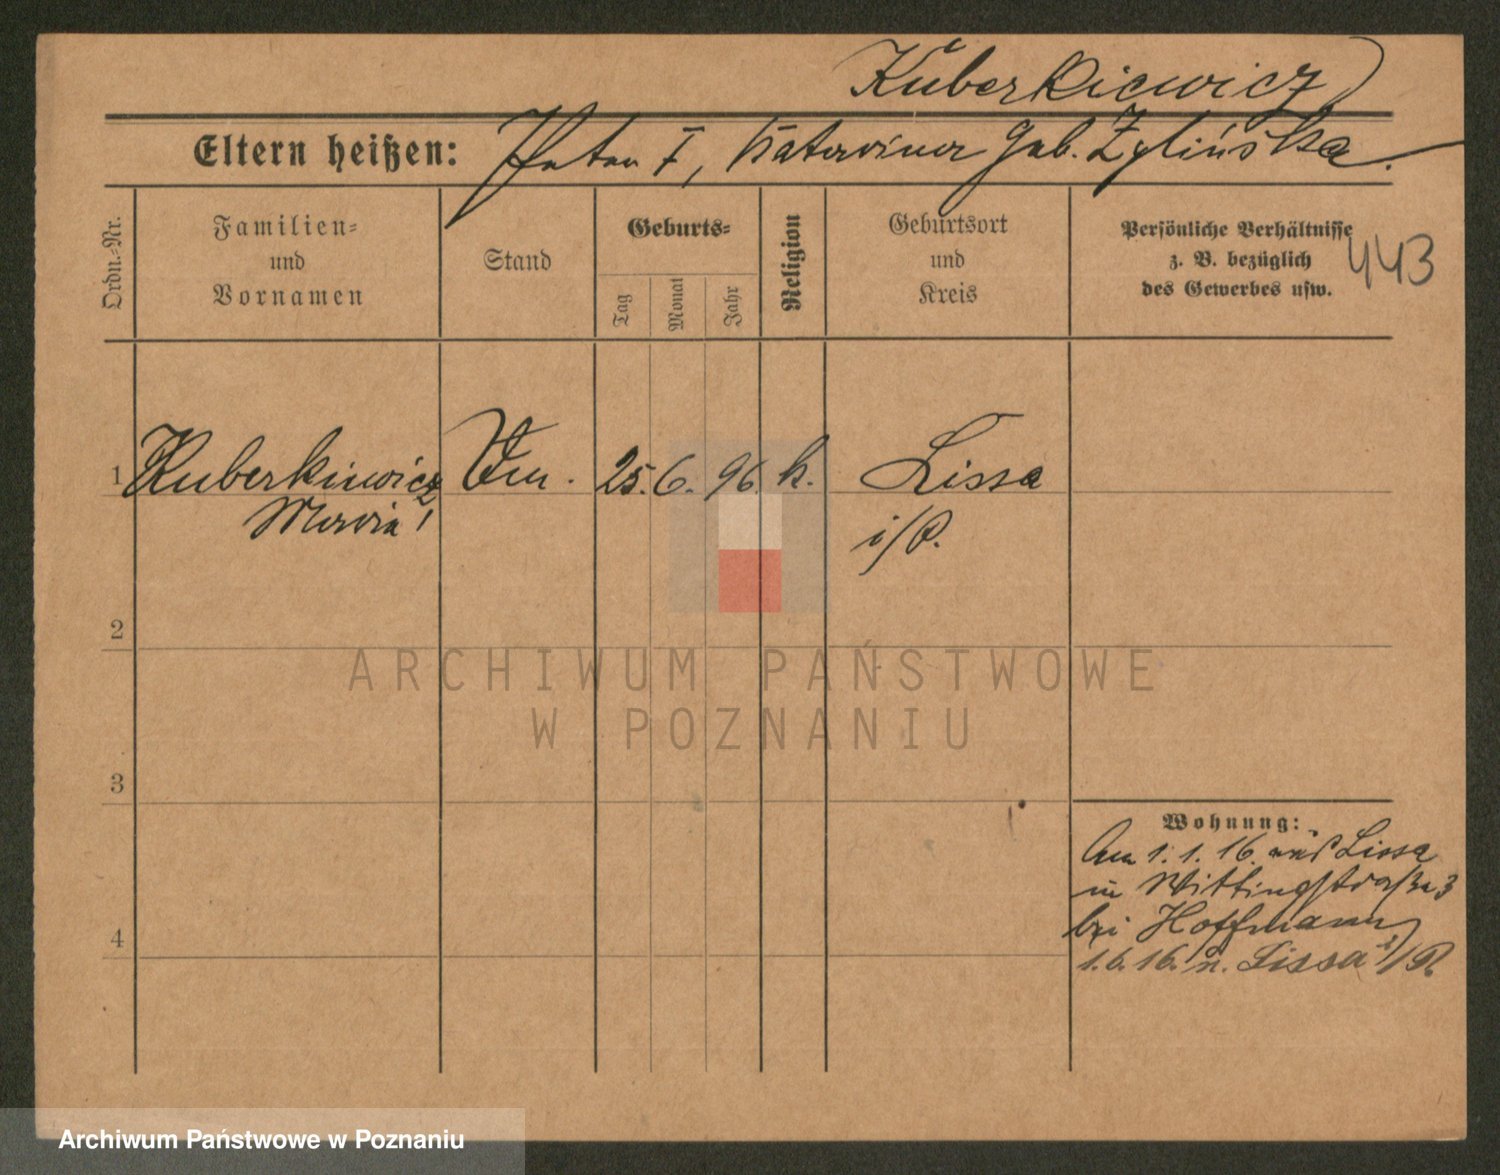 Kuberkiewicz
Eltern heißen: Peter †, Katarina geb. Zylińska.
Ordn.-Nr.
Familien-
und
Vornamen
Stand
Geburts-
Tag
Monat
Jahr
Religion
Geburtsort
und
Kreis
Persönliche Verhältnisse
z. B. bezüglich
des Gewerbes usw.
443
1 Kuberkiewicz 25. 6. 96. k. Lissa
Maria i/P.
2
ARCHIWUM PAŃSTWOWE
W POZNANIU
3
Wohnung:
Am 1. 1. 16. Lissa
in Wittingstraße 3
4 bei Hoffmann
1.6.16. n. Lissa i/P.
Archiwum Państwowe w Poznaniu